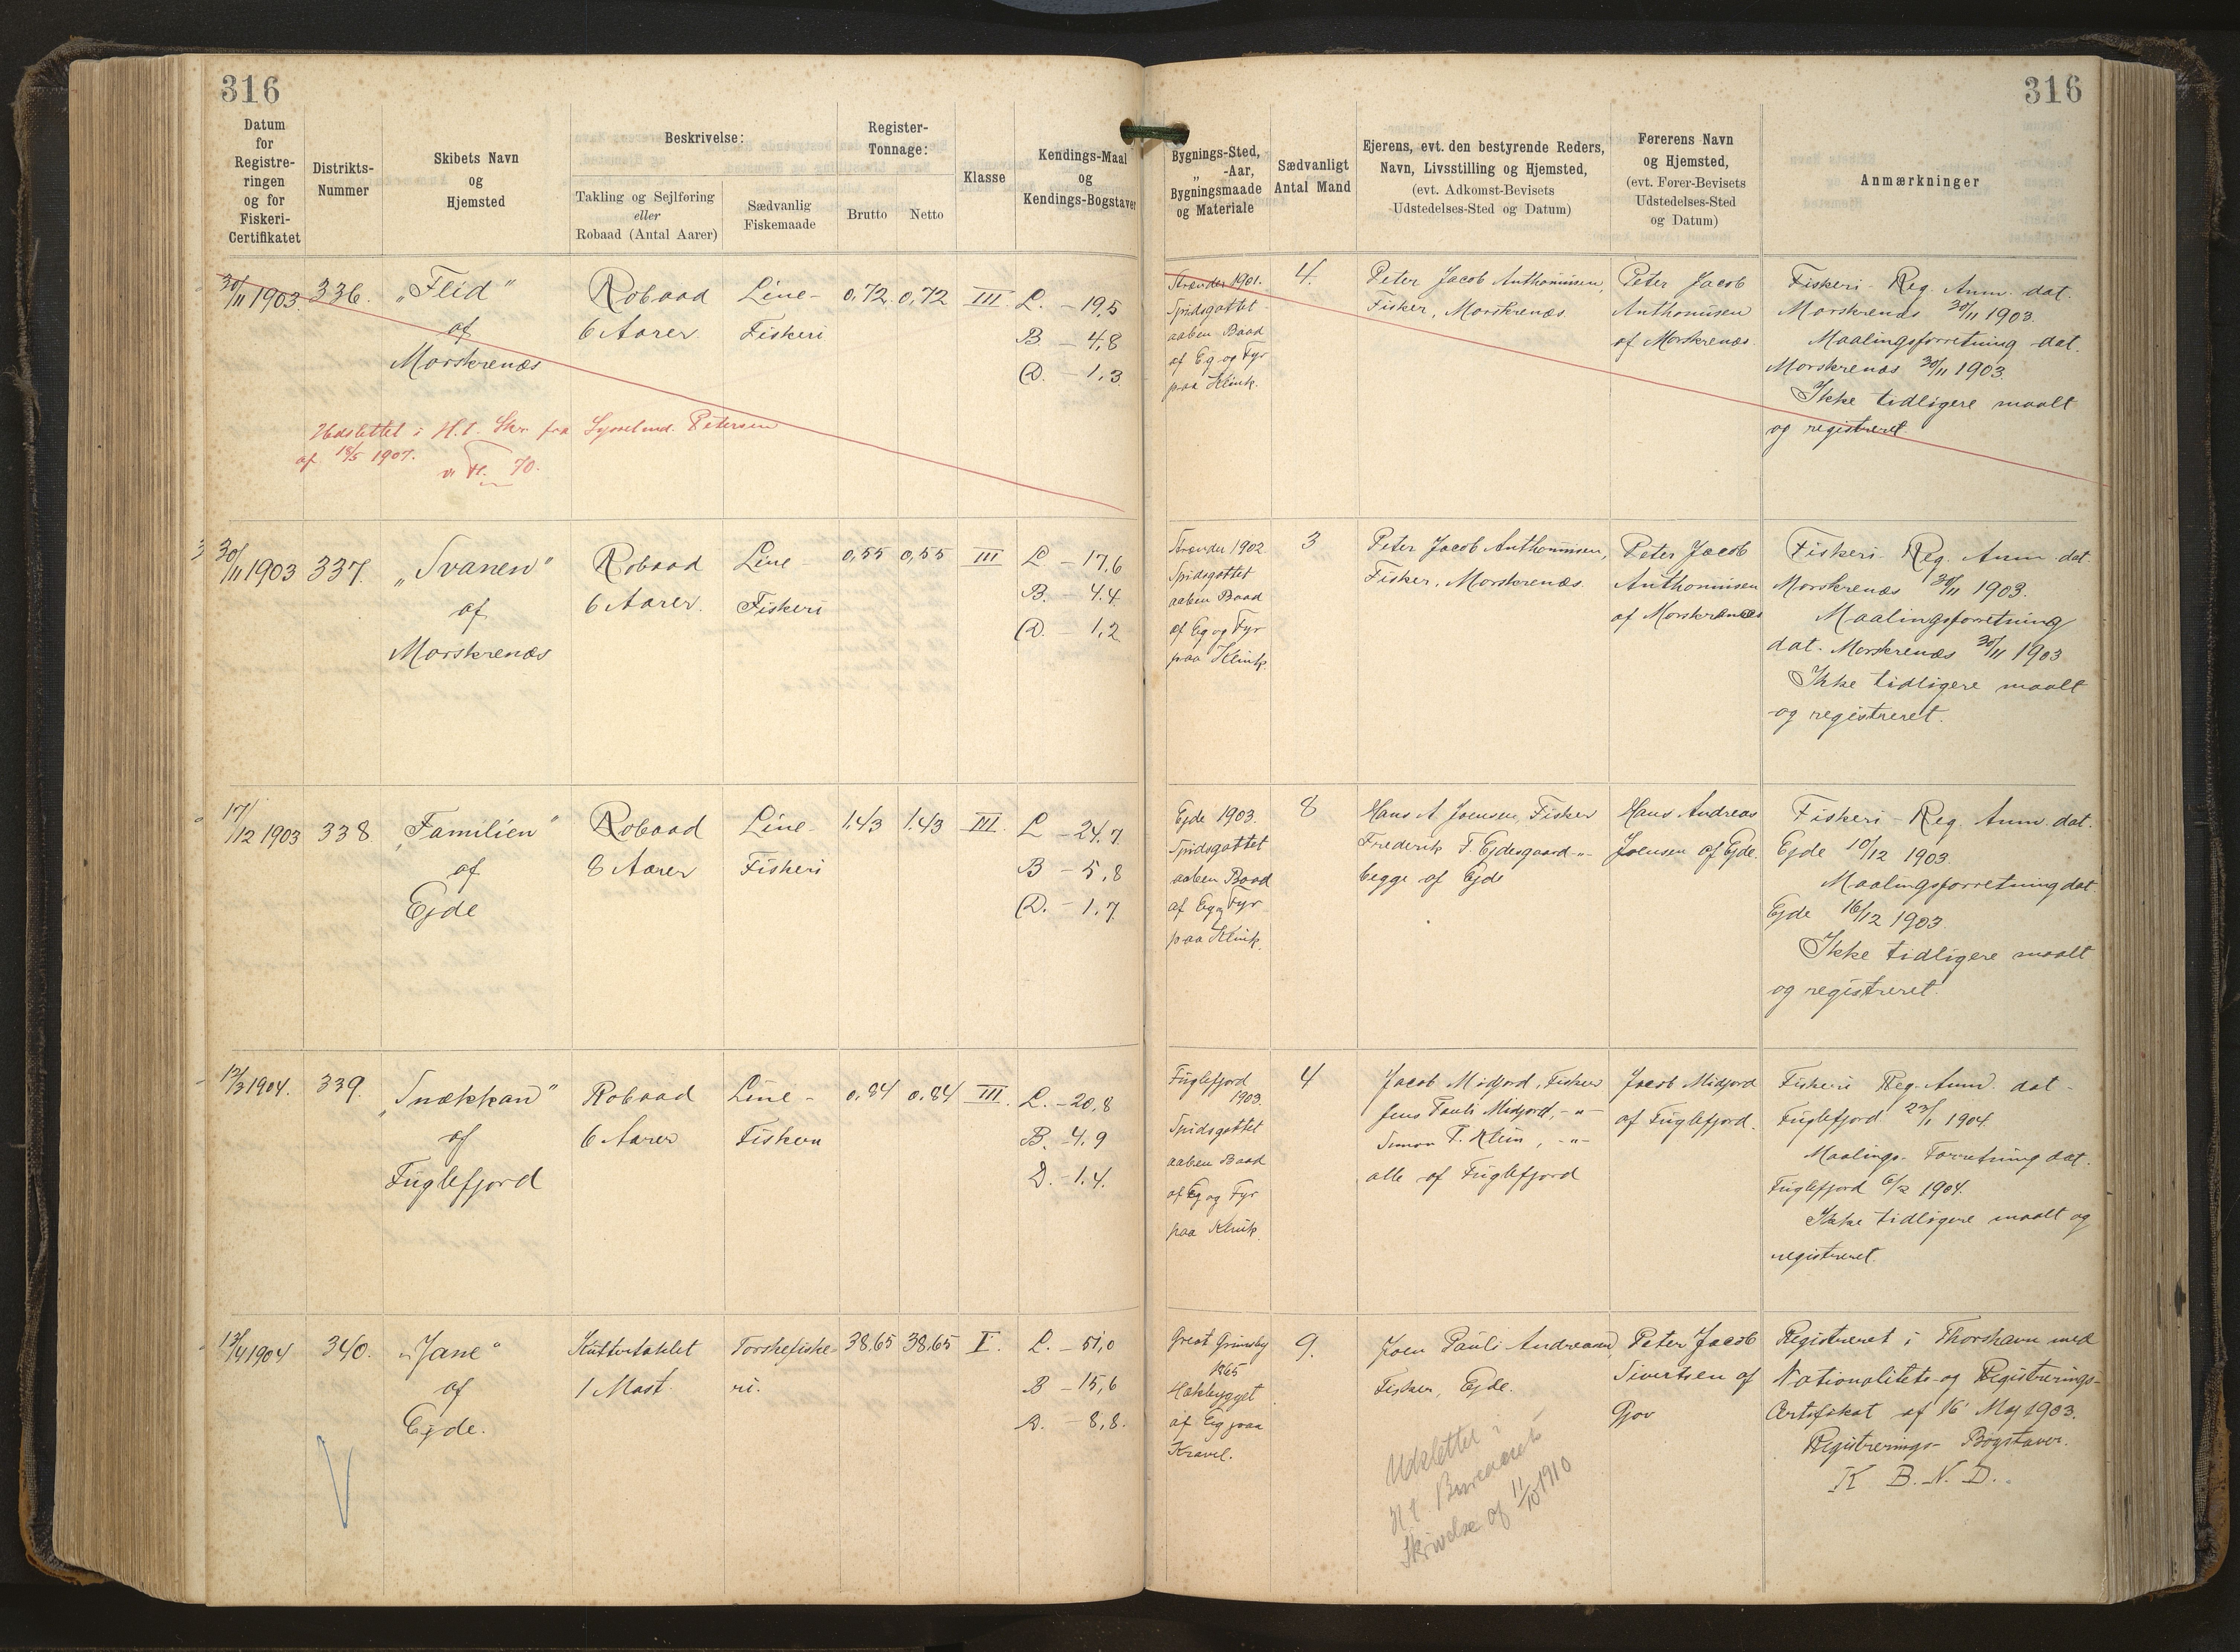 316
316
Datum
for
Registre-
ringen
og for
Fiskeri-
Certifikatet
Distrikts-
Nummer
Skibets Navn
og
Hjemsted
Beskrivelse:
Takling og Sejlføring
eller
Robaad (Antal Aarer)
Sædvanlig
Fiskemaade
Register-
Tonnage:
Brutto
Netto
Klasse
Kendings-Maal
og
Kendings-Bogstaver
Bygnings-Sted,
„ -Aar,
Bygningsmaade
og Materiale
Sædvanligt
Antal Mand
Ejerens, evt. den bestyrende Reders,
Navn, Livsstilling og Hjemsted,
(evt. Adkomst-Bevisets
Udstedelses-Sted og Datum)
Førerens Navn
og Hjemsted,
(evt. Fører-Bevisets
Udstedelses-Sted
og Datum)
Anmærkninger
30/11 1903.
336.
„Flid“
af
Morskrenæs
Robaad
6 Aarer.
Line-
Fiskeri
0,72
0,72
III.
L. - 19,5
B. - 4,8
D. - 1,3
Strænder 1901.
Spidsgattet
aaben Baad
af Eg og Fyr
paa Klink.
4.
Peter Jacob Anthoniusen,
Fisker, Morskrenæs.
Peter Jacob
Anthoniusen
af Morskrenæs.
Fiskeri-Reg. Anm. dat.
Morskrenæs 30/11 1903.
Maalingsforretning dat.
Morskrenæs 30/11 1903.
Ikke tidligere maalt
og registreret.
Udslettet i H.t. Skr. fra Sysselmd. Petersen
af 18/5 1907.
70.
30/11 1903
337.
„Svanen“
af
Morskrenæs
Robaad
6 Aarer.
Line-
Fiskeri
0,55
0,55
III
L - 17,6
B. - 4.4.
D. - 1,2
Strænder 1902
Spidsgattet
aaben Baad
af Eg og Fyr
paa Klink.
3
Peter Jacob Anthoniusen,
Fisker, Morskrenæs.
Peter Jacob
Anthoniusen
af Morskrenæs
Fiskeri-Reg. Anm. dat.
Morskrenæs 30/11 1903.
Maalingsforretning
dat. Morskrenæs 30/11 1903
Ikke tidligere maalt
og registreret.
17/12 1903
338
„Familien“
af
Ejde
Robaad
8 Aarer
Line-
Fiskeri
1,43
1,43
III.
L - 24,7
B - 5,8
D. - 1,7
Ejde 1903.
Spidsgattet
aaben Baad
af Eg og Fyr
paa Klink.
8
Hans A Joensen, Fisker
Frederik F. Ejdesgaard -"-
begge af Ejde
Hans Andreas
Joensen af Ejde.
Fiskeri-Reg. Anm. dat.
Ejde 10/12 1903.
Maalingsforretning dat
Ejde 16/12 1903
Ikke tidligere maalt
og registreret.
12/3 1904.
339.
„Snækkan“
af
Fuglefjord
Robaad
6 Aarer
Line-
Fiskeri
0,84
0,84
III.
L. - 20,8
B. - 4,9
D. - 1.4.
Fuglefjord
1903.
Spidsgattet
aaben Baad
af Eg og Fyr
paa Klink.
4
Jacob Midjord, Fisker
Jens Pauli Midjord, -"-
Simon P. Klein, -"-
alle af Fuglefjord
Jacob Midjord
af Fuglefjord.
Fiskeri Reg. Anm. dat-
Fuglefjord 23/1 1904.
Maalings-Forretning dat.
Fuglefjord 6/2 1904.
Ikke tidligere maalt og
registreret.
13/4 1904
340.
„Jane“
af
Ejde.
Kuttertaklet
1 Mast.
Torskefiske-
ri.
38,65
38,65
I.
L. - 51,0
B - 15,6
D. - 8,8.
Great Grimsby
1865
Hækbygget
af Eg paa
Kravel.
9.
Joen Pauli Andreasen,
Fisker, Ejde.
Peter Jacob
Sivertsen af
Gjov
Registreret i Thorshavn med
Nationalitets- og Registrerings-
Certifikat af 16' Maj 1903.
Registrerings-Bogstaver.
K B. N. D.
Udslettet i
H.t. Bureauets
Skrivelse af 11/10 1910